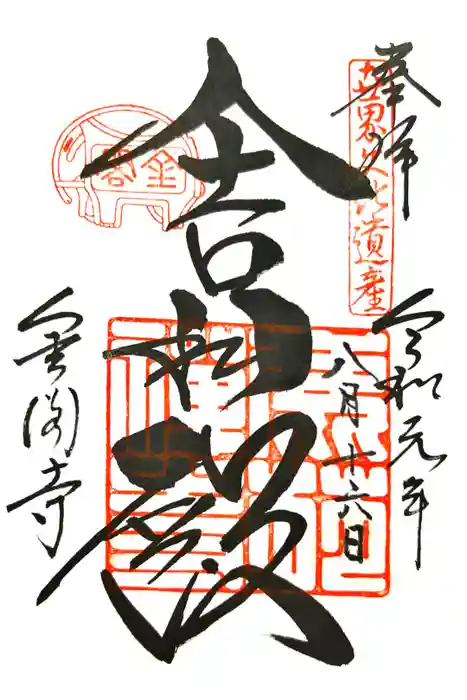 奉拝
世界文化遺産
令和元年
八月十六日
舎利殿
金閣
金閣寺